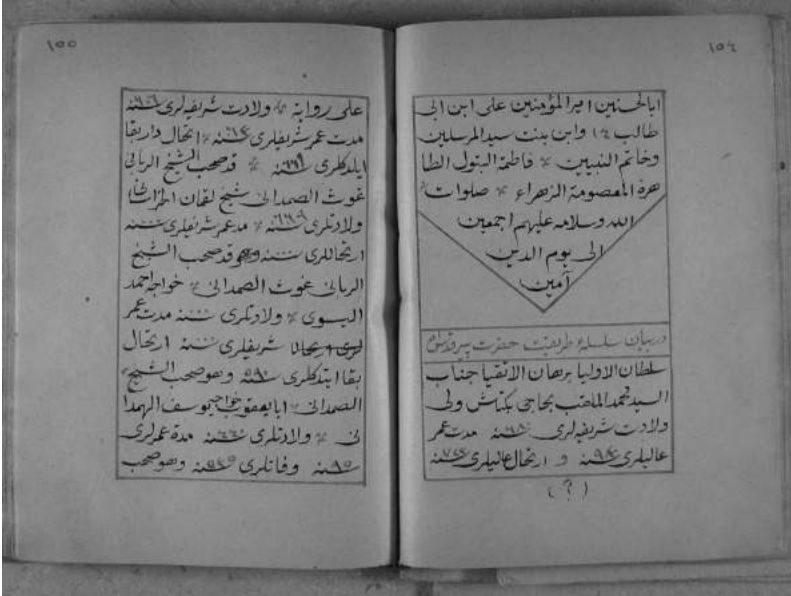 ١٥٤
ابا الحسنين امير المؤمنين على ابن ابى
طالب ١٤ وابن بنت سيد المرسلين
وخاتم النبيين فاطمة البتول الطا
هرة المعصومة الزهراء صلوات
الله وسلامه عليهم اجمعين
الى يوم الدين
آمين
در بيان سلسلۀ طريقت حضرت پير
سلطان الاوليا برهان الاتقيا جناب
السيد محمد الملقب بحاجى بكتاش ولى
ولادت شريفه لرى سنه مدت عمر
عاليلرى سنه و ارتحال عاليلرى سنه
(؟)
١٥٥
على رواية ولادت شريفه لرى سنه
مدت عمر شريفلرى سنه ارتحال دار بقا
ايلدكلرى سنه قد صحب الشيخ الربانى
غوث الصمدانى شيخ لقمان
ولادتلرى سنه مدت عمر شريفلرى سنه
ارتحاللرى سنه وهو قد صحب الشيخ
الربانى غوث الصمدانى خواجه احمد
اليسوى ولادتلرى سنه مدت عمر
شريفلرى سنه ارتحال
بقا ايتدكلرى ٥٩٠ سنه وهو صحب الشيخ
الصمدانى ابا يعقوب خواجه يوسف الهمدا
نى ولادتلرى سنه مدة عمرلرى
٩٥ سنه وفاتلرى سنه وهو صحب